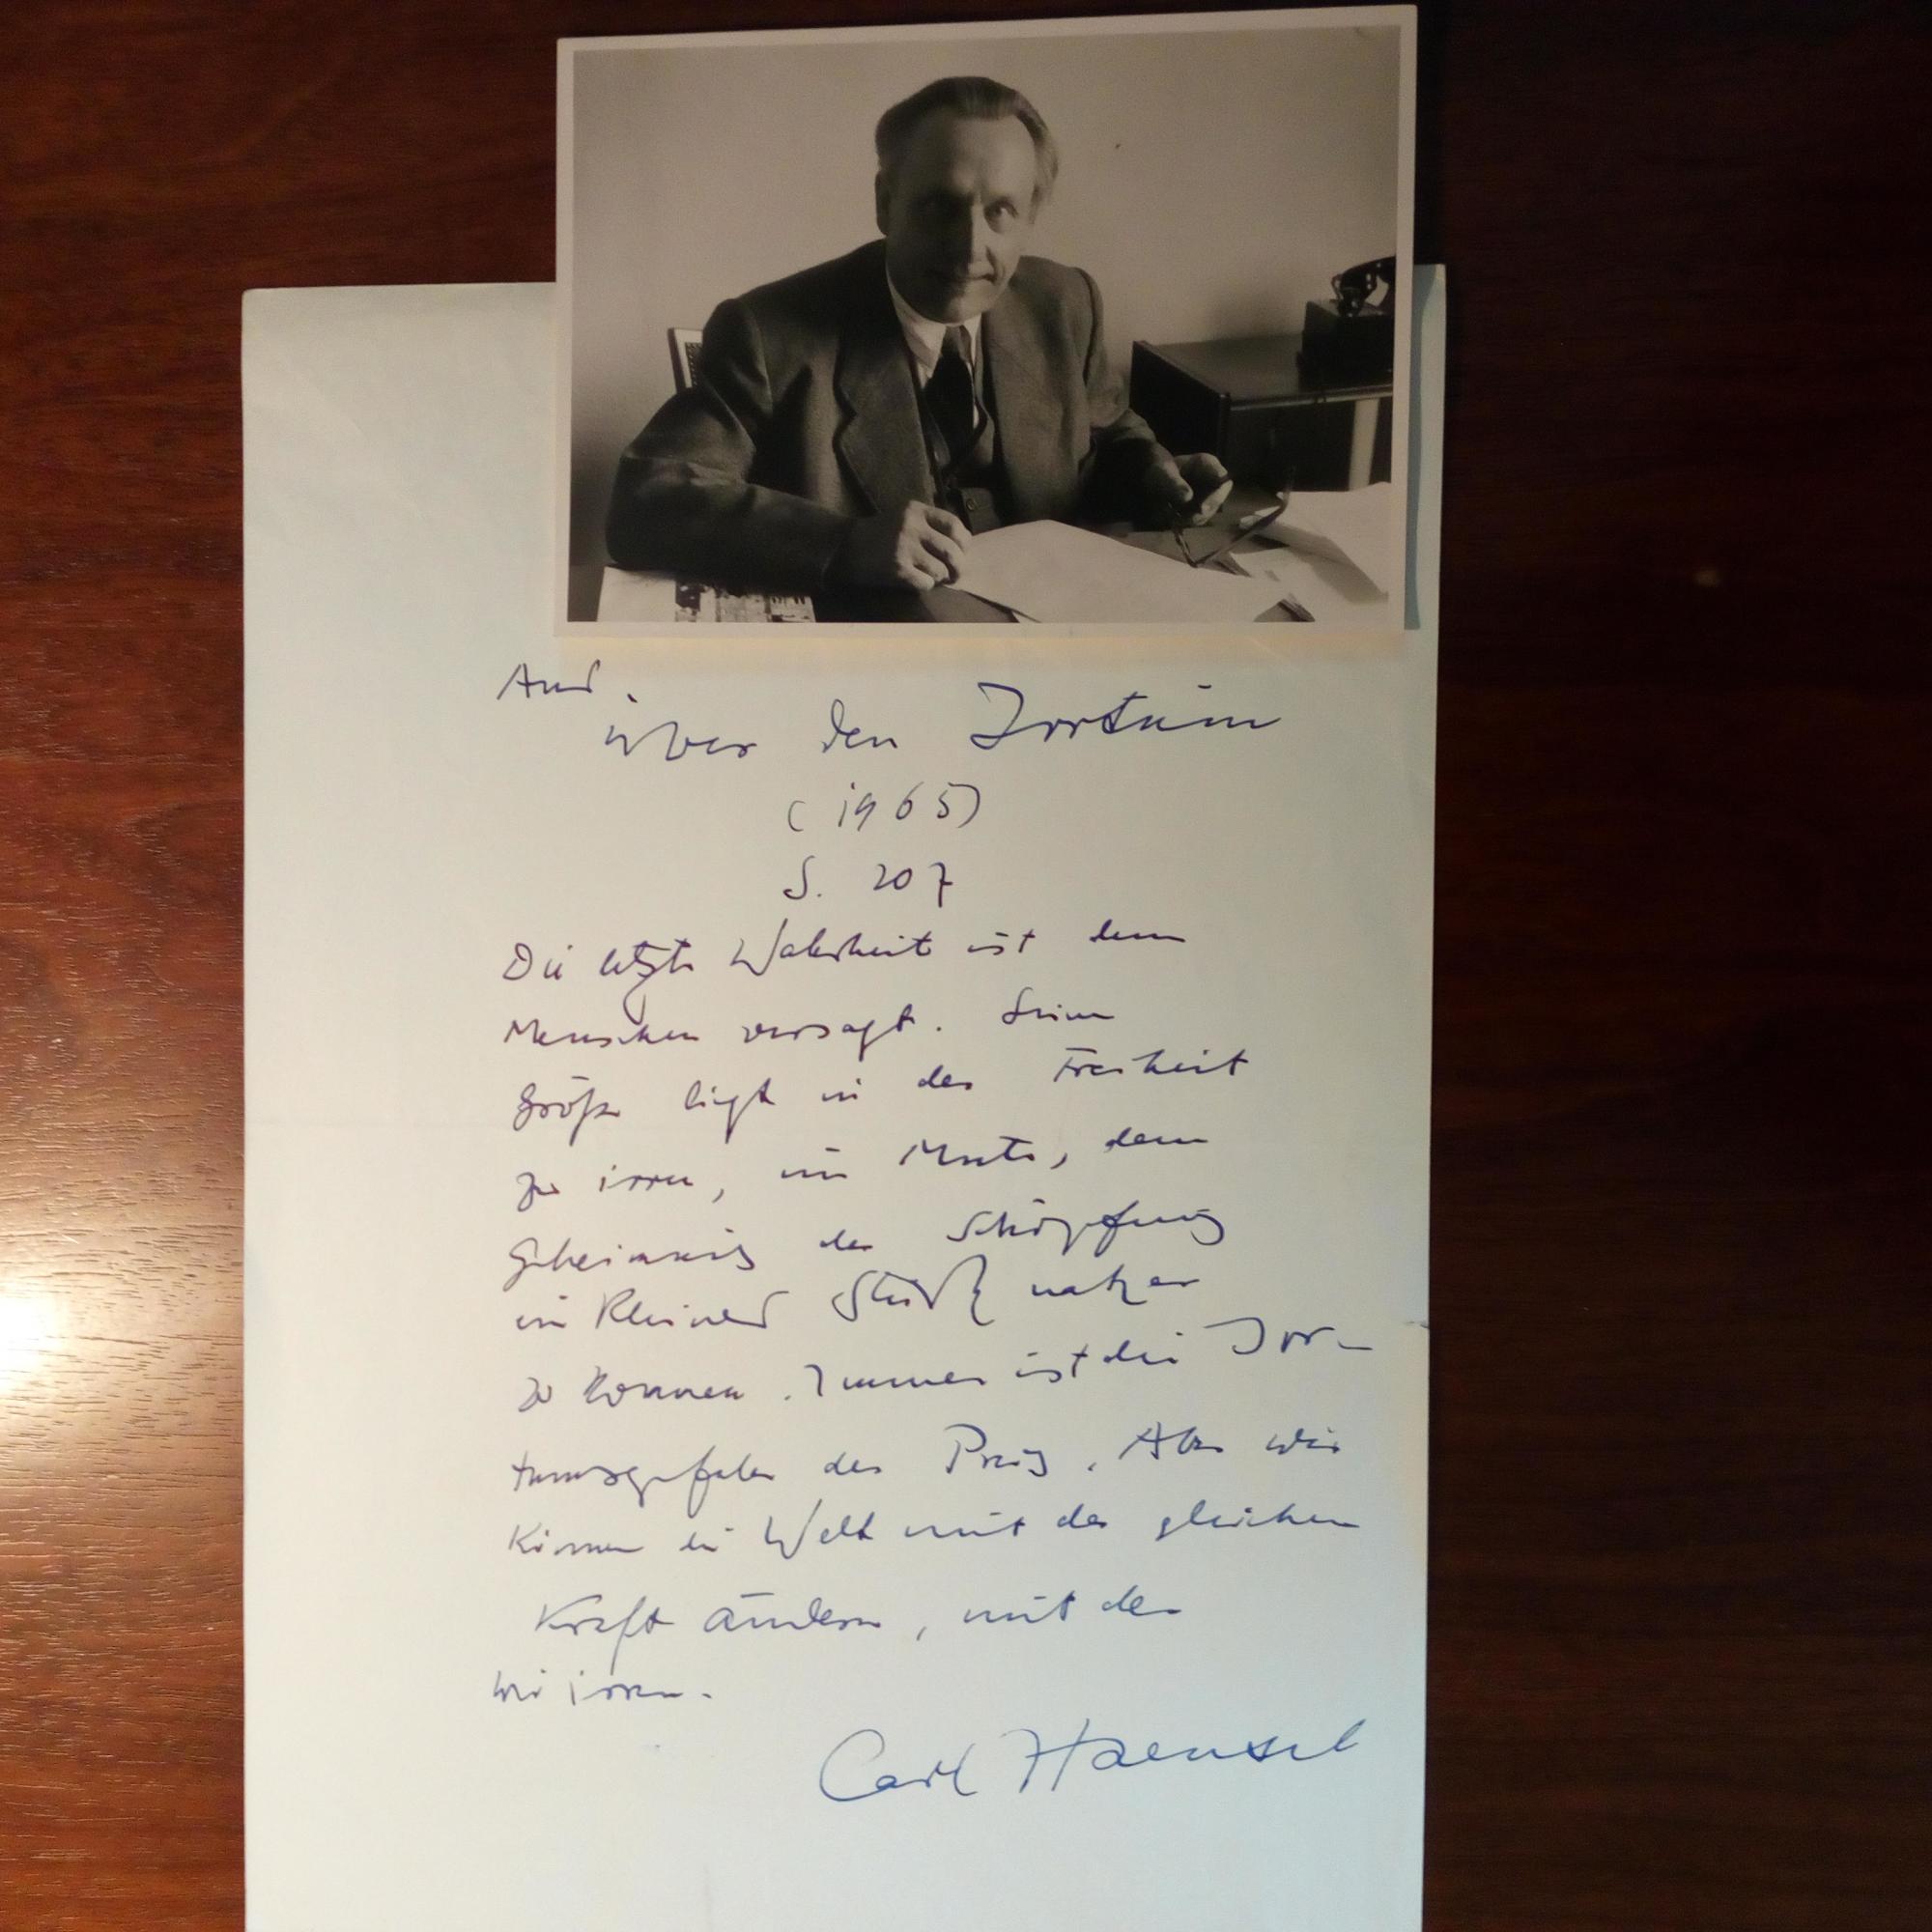 Aus
über den Irrtum
(1965)
S. 207
Die letzte Wahrheit ist dem
Menschen versagt. Seine
Größe liegt in der Freiheit
zu irren, im Mute, dem
Geheimnis der Schöpfung
ein kleines Stück näher
zu kommen. Immer ist die Irr-
tumsgefahr der Preis. Aber wir
können die Welt mit der gleichen
Kraft ändern, mit der
wir irren.
Carl Haensel